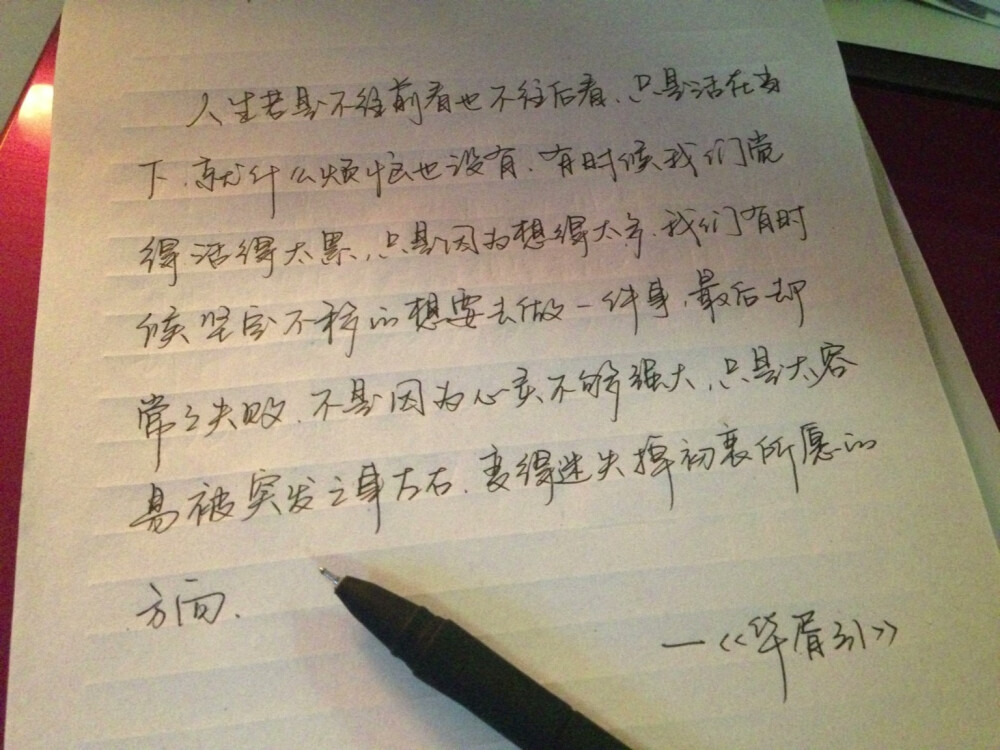 人生若是不往前看也不往后看、只是活在当
下、就什么烦恼也没有、有时候我们觉
得活得太累、只是因为想得太多、我们有时
候坚定不移的想要去做一件事、最后却
常々失败、不是因为心灵不够强大、只是太容
易被突发之事左右、变得迷失掉初衷所愿的
方向、
—《华胥引》